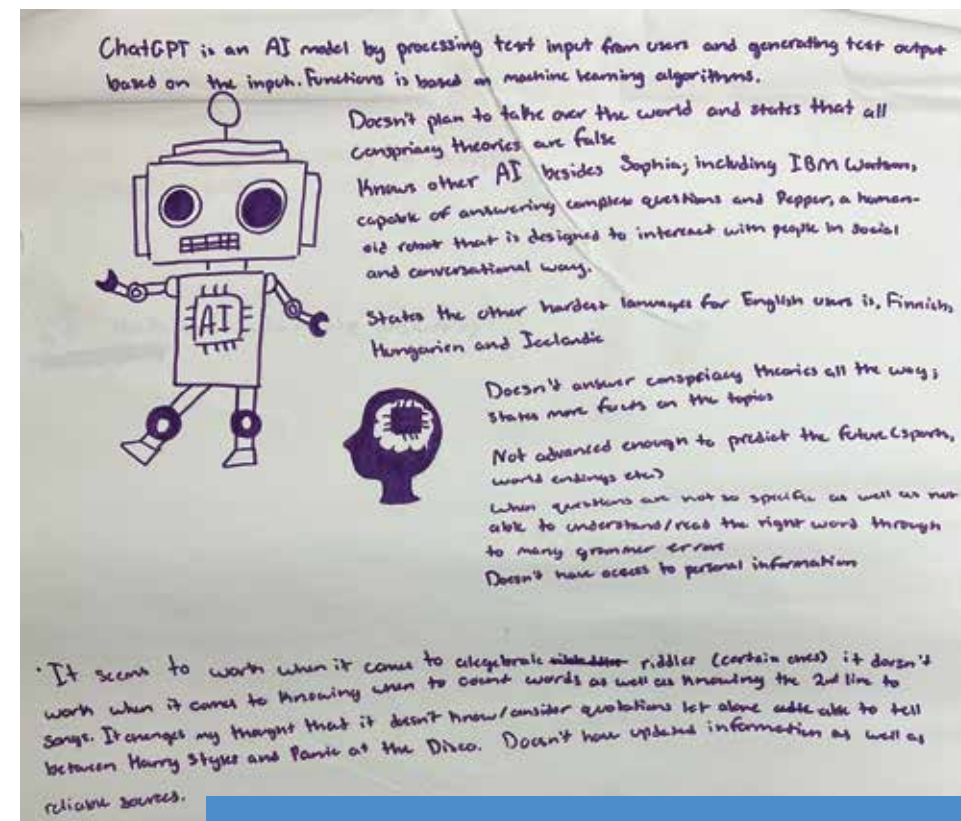 ChatGPT is an AI model by processing text input from users and generating text output
based on the input. Functions is based on machine learning algorithms.
Doesn't plan to take over the world and states that all
conspriacy theories are false
Knows other AI besides Sophia; including IBM Watson,
capable of answering complex questions and Pepper, a human-
oid robot that is designed to intereact with people in social
and conversational way.
AI
States the other hardest languages for English users is, Finnish,
Hungarien and Icelandic
Doesn't answer conspriacy theories all the way;
states more facts on the topics
Not advanced enough to predict the future (sports,
world endings etc.)
When questions are not so specific as well as not
able to understand/read the right word through
to many grammer errors
Doesn't have access to personal information
· It seems to work when it comes to alegebraic riddles (certain ones) it doesn't
work when it comes to knowing when to count words as well as knowing the 2nd line to
songs. It changes my thought that it doesn't know/consider quotations let alone able to tell
between Harry Styles and Panic at the Disco. Doesn't have updated information as well as
reliable sources.